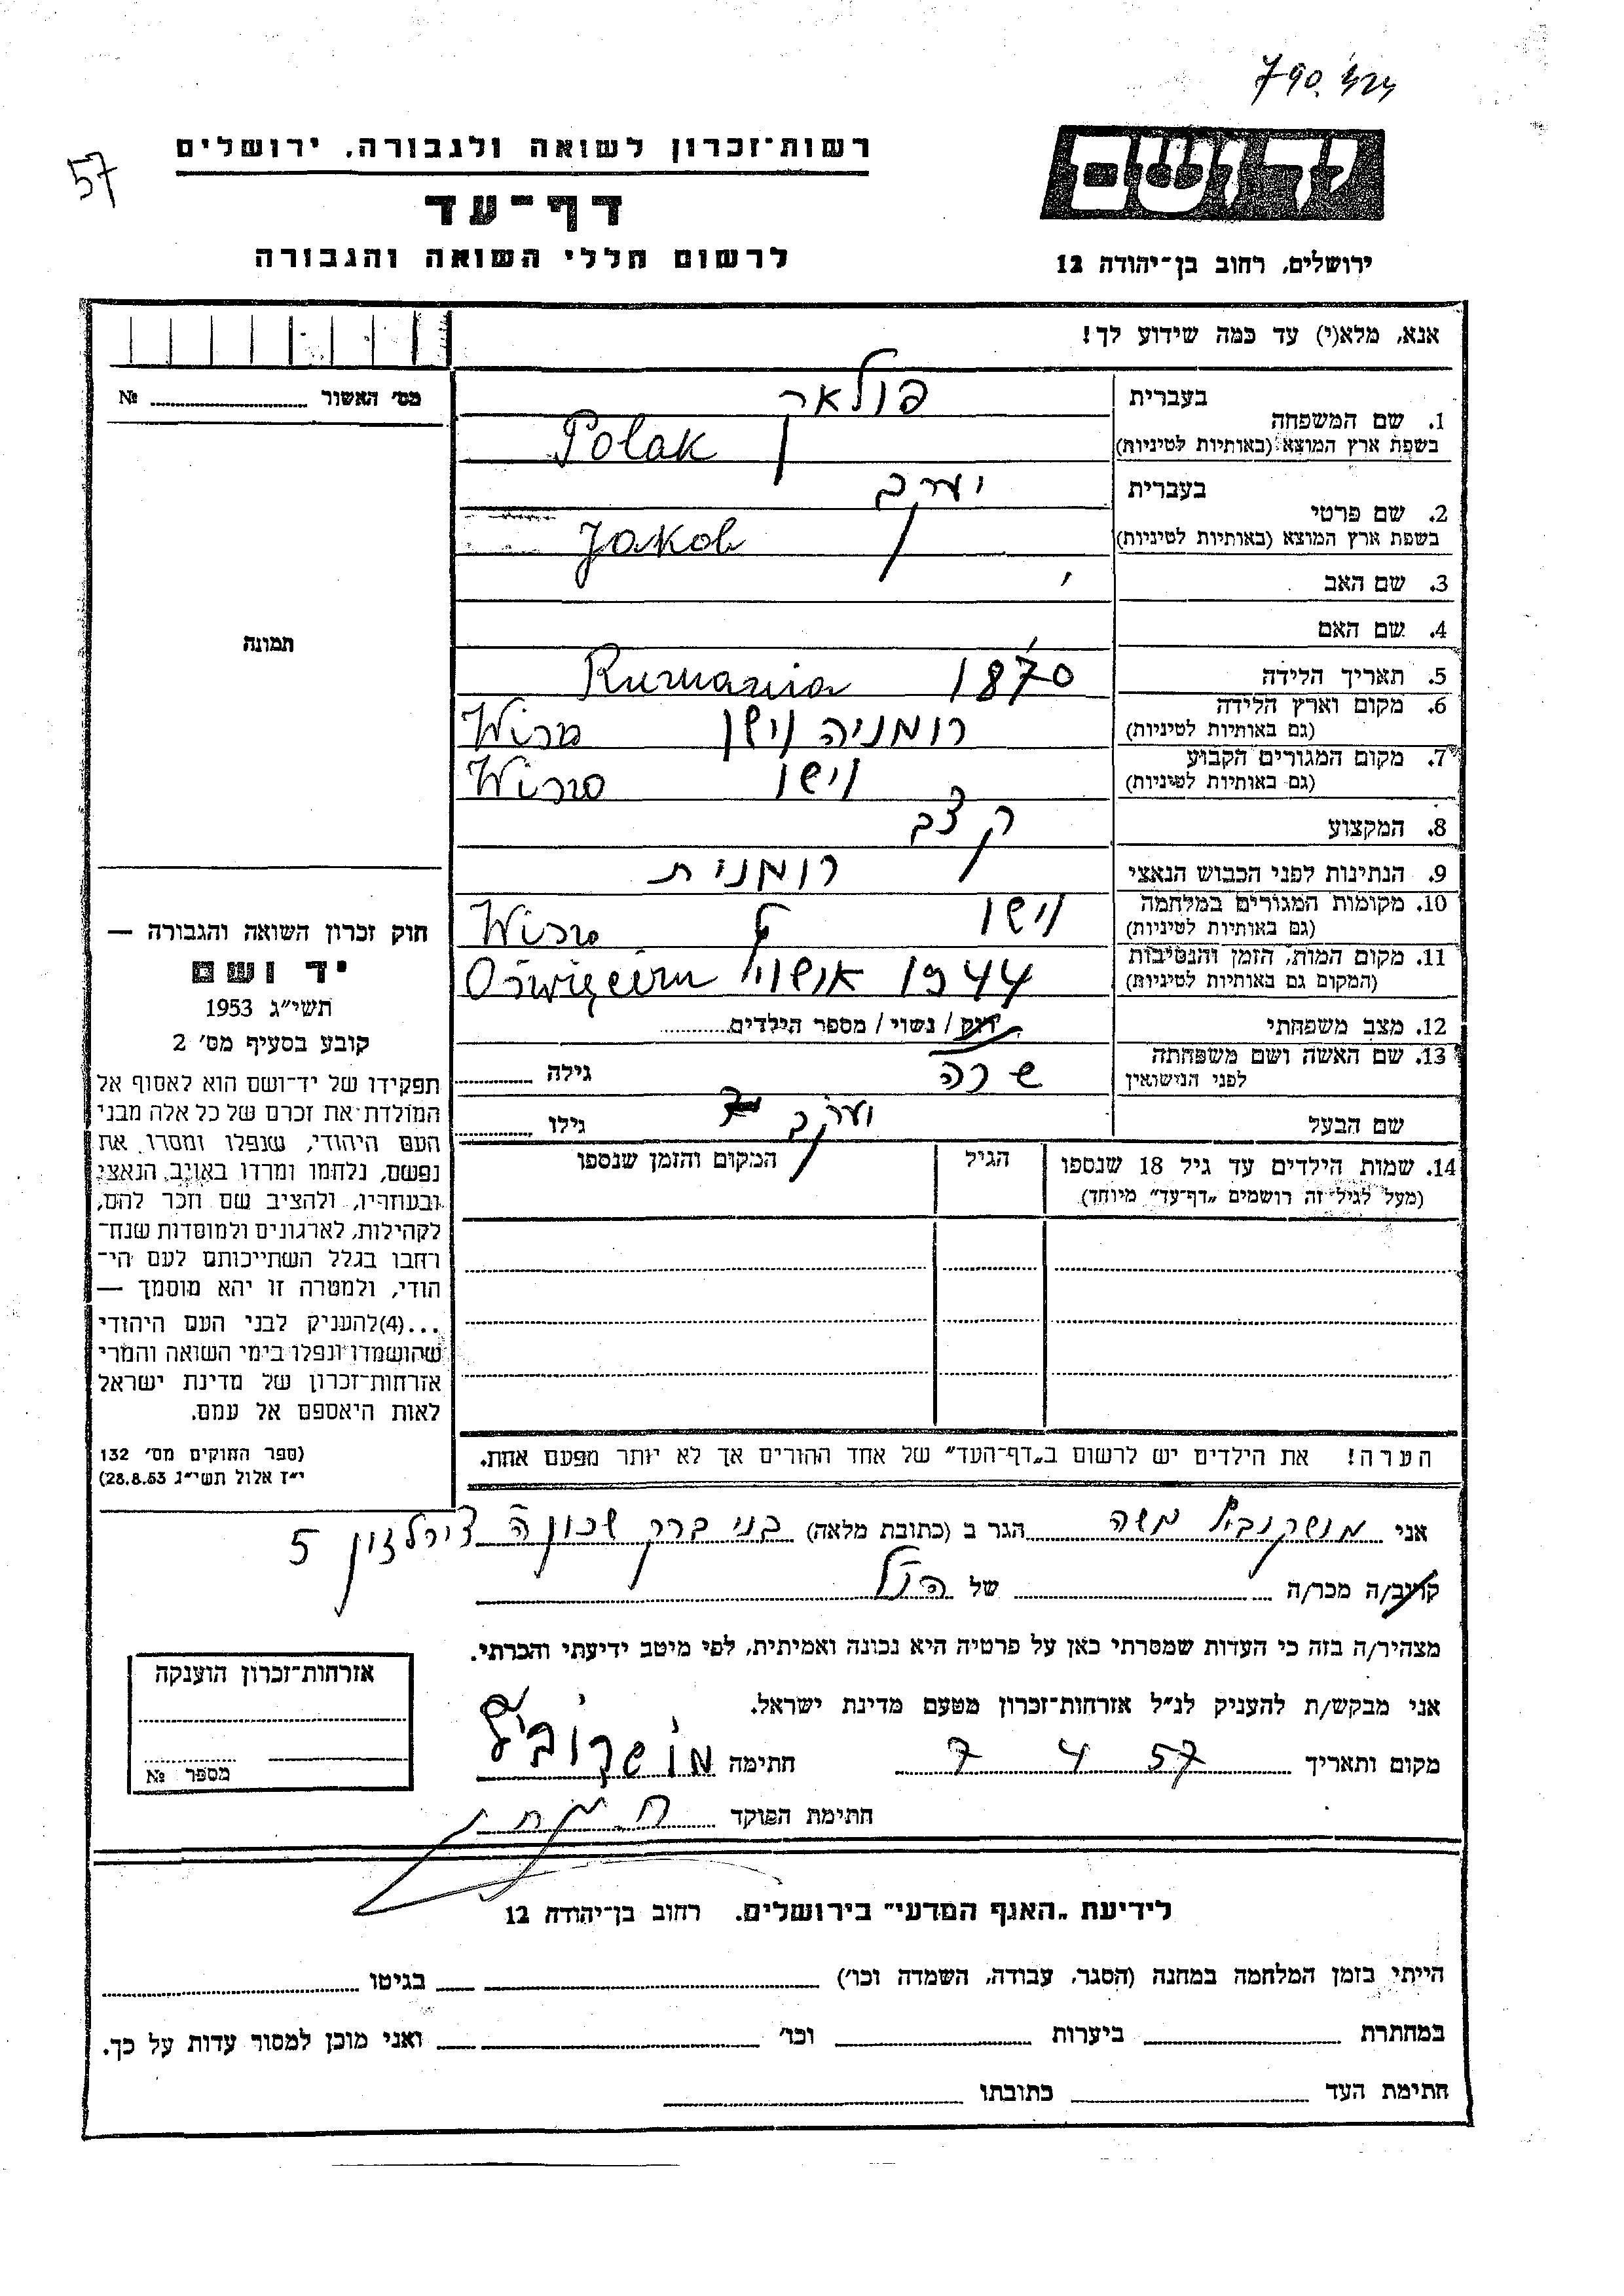 57
רשות־זכרון לשואה ולגבורה, ירושלים
דף־עד
לרשום חללי השואה והגבורה
ידושם
ירושלים, רחוב בן־יהודה 12
אנא, מלא(י) עד כמה שידוע לך!
מס׳ האשור № 
1. שם המשפחה
בעברית פולאק
בשפת ארץ המוצא (באותיות לטיניות) Polak
2. שם פרטי
בעברית יעקב
בשפת ארץ המוצא (באותיות לטיניות) Jakob
3. שם האב
4. שם האם
תמונה
5. תאריך הלידה 1870 Rumania
6. מקום וארץ הלידה רומניה
(גם באותיות לטיניות)
7. מקום המגורים הקבוע וישו
(גם באותיות לטיניות)
8. המקצוע קצב
9. הנתינות לפני הכבוש הנאצי רומנית
10. מקומות המגורים במלחמה וישו
(גם באותיות לטיניות)
11. מקום המות, הזמן והנסיבות 1944 Oświęcim
(המקום גם באותיות לטיניות)
12. מצב משפחתי רוק / נשוי / מספר הילדים
13. שם האשה ושם משפחתה שרה גילה
לפני הנישואין
שם הבעל יעקב גילו
14. שמות הילדים עד גיל 18 שנספו הגיל המקום והזמן שנספו
(מעל לגיל זה רושמים „דף־עד״ מיוחד)
הערה! את הילדים יש לרשום ב„דף־העד״ של אחד ההורים אך לא יותר מפעם אחת.
חוק זכרון השואה והגבורה —
יד ושם
תשי״ג 1953
קובע בסעיף מס׳ 2
תפקידו של יד־ושם הוא לאסוף אל
המולדת את זכרם של כל אלה מבני
העם היהודי, שנפלו ומסרו את
נפשם, נלחמו ומרדו באויב הנאצי
ובעוזריו, ולהציב שם וזכר להם,
לקהילות, לארגונים ולמוסדות שנח־
רבו בגלל השתייכותם לעם הי־
הודי, ולמטרה זו יהא מוסמך —
...(4)להעניק לבני העם היהודי
שהושמדו ונפלו בימי השואה והמרי
אזרחות־זכרון של מדינת ישראל
לאות היאספם אל עמם.
(ספר החוקים מס׳ 132
י״ז אלול תשי״ג 28.8.53)
אני משה הגר ב (כתובת מלאה) בני ברק שכונה 5
קרוב/ה מכר/ה של הנ״ל
מצהיר/ה בזה כי העדות שמסרתי כאן על פרטיה היא נכונה ואמיתית, לפי מיטב ידיעתי והכרתי.
אני מבקש/ת להעניק לנ״ל אזרחות־זכרון מטעם מדינת ישראל.
מקום ותאריך 7 4 57 חתימה
חתימת הפוקד
אזרחות־זכרון הוענקה
מספר №
לידיעת „האגף המדעי״ בירושלים. רחוב בן־יהודה 12
הייתי בזמן המלחמה במחנה (הסגר, עבודה, השמדה וכו׳) בגיטו
במחתרת ביערות וכו׳ ואני מוכן למסור עדות על כך.
חתימת העד כתובתו